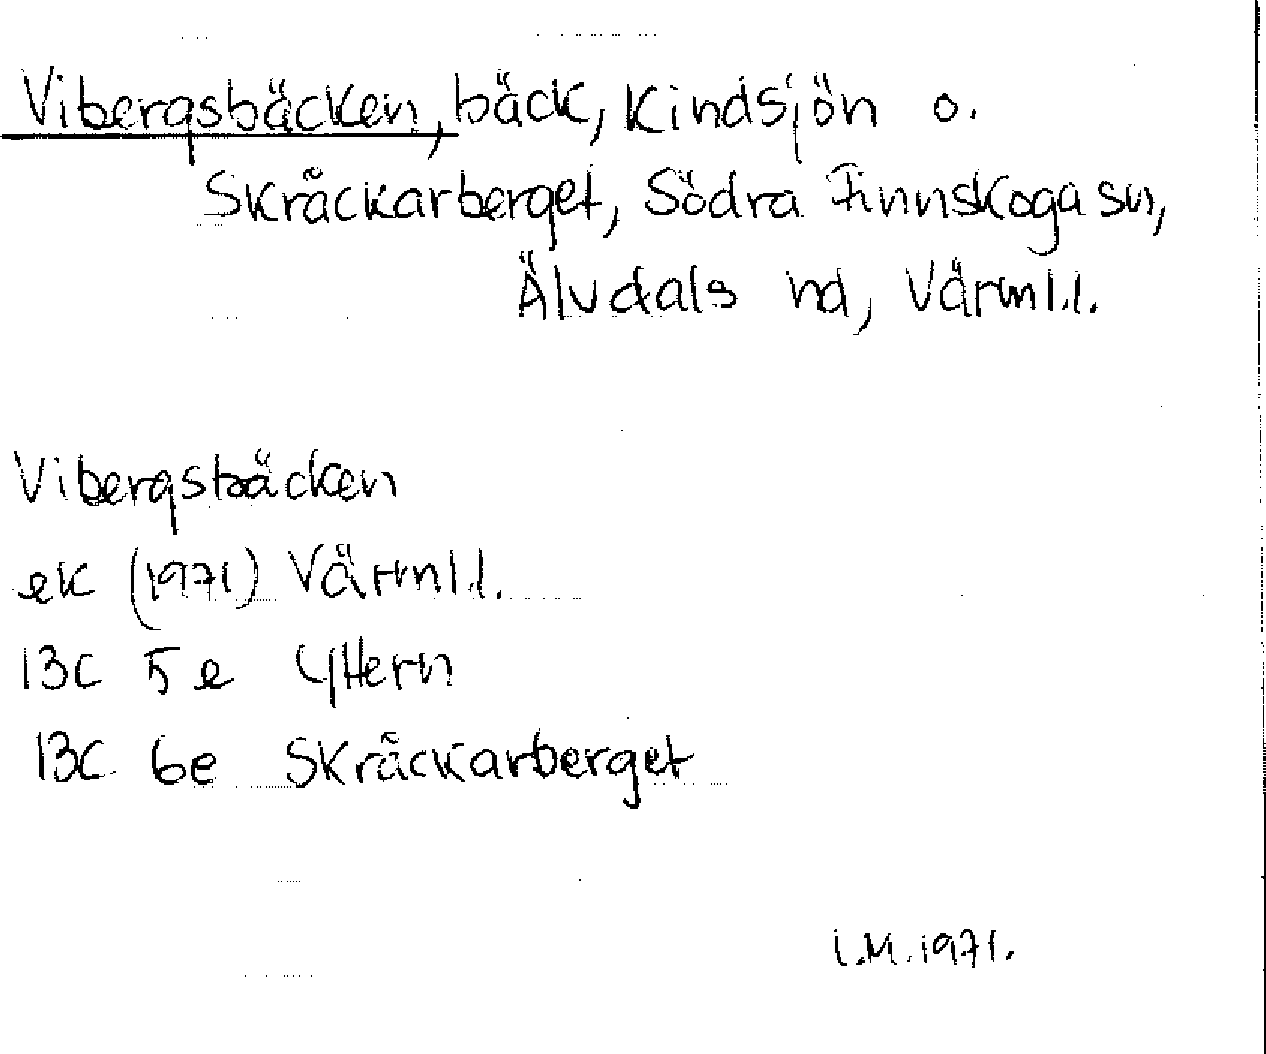 Vibergsbäcken, bäck, Kindsjön o.
Skråckarberget, Södra Finnskoga sn,
Älvdals hd, Värml.l.
Vibergsbäcken
ek (1971) Värml.l.
13C 5e Yttern
13C 6e Skråckarberget
I.M. 1971.